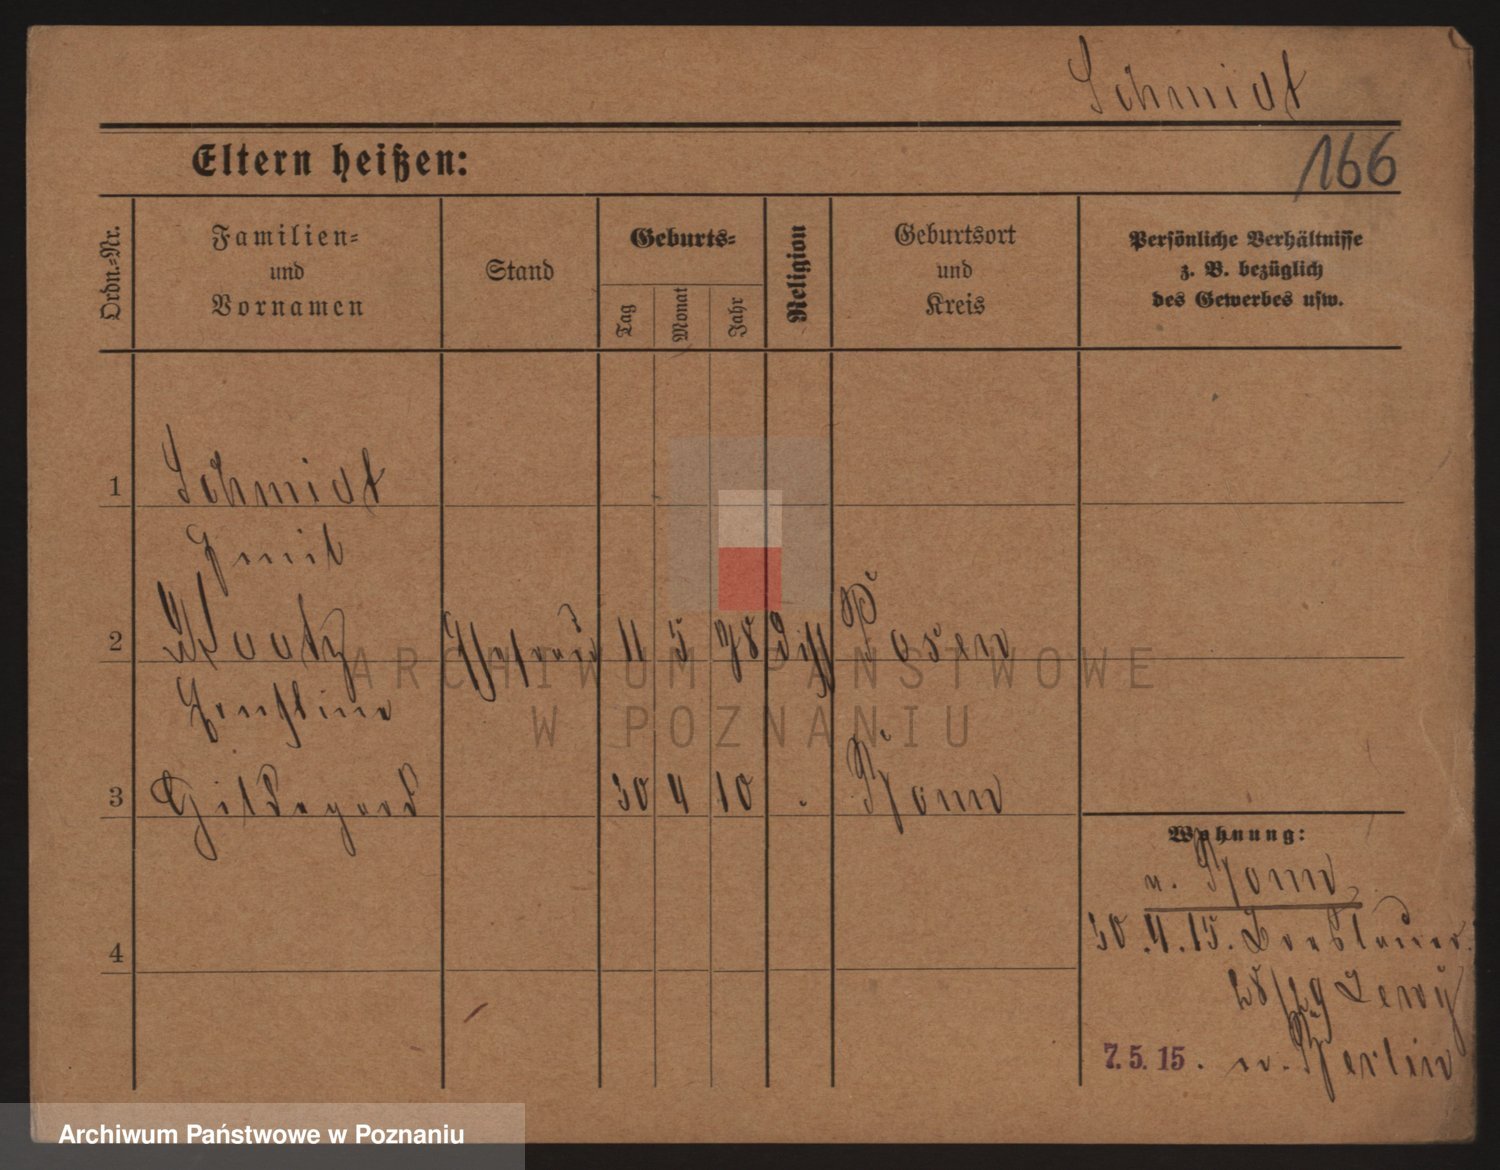 Schmidt
166
Eltern heißen:
Ordn.-Nr.
Familien-
und
Vornamen
Stand
Geburts-
Tag
Monat
Jahr
Religion
Geburtsort
und
Kreis
Persönliche Verhältnisse
z. B. bezüglich
des Gewerbes usw.
1
Schmidt
Emil
2
Ehefrau 11 5 78 diss Posen
Ernstine
3
Hildegard 30 4 10 . Bonn
4
Wohnung:
v. Bonn
30.4.15. Breslauer
28/29 Lewy
7.5.15. n. Berlin
ARCHIWUM PAŃSTWOWE
W POZNANIU
Archiwum Państwowe w Poznaniu